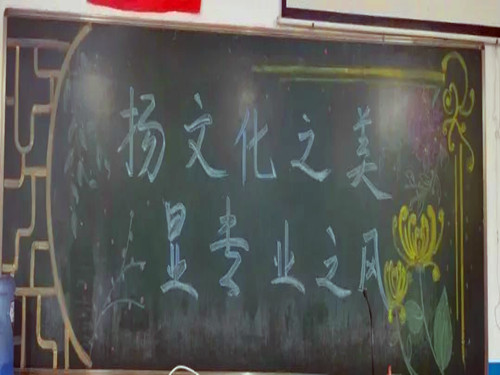 扬文化之美
显专业之风